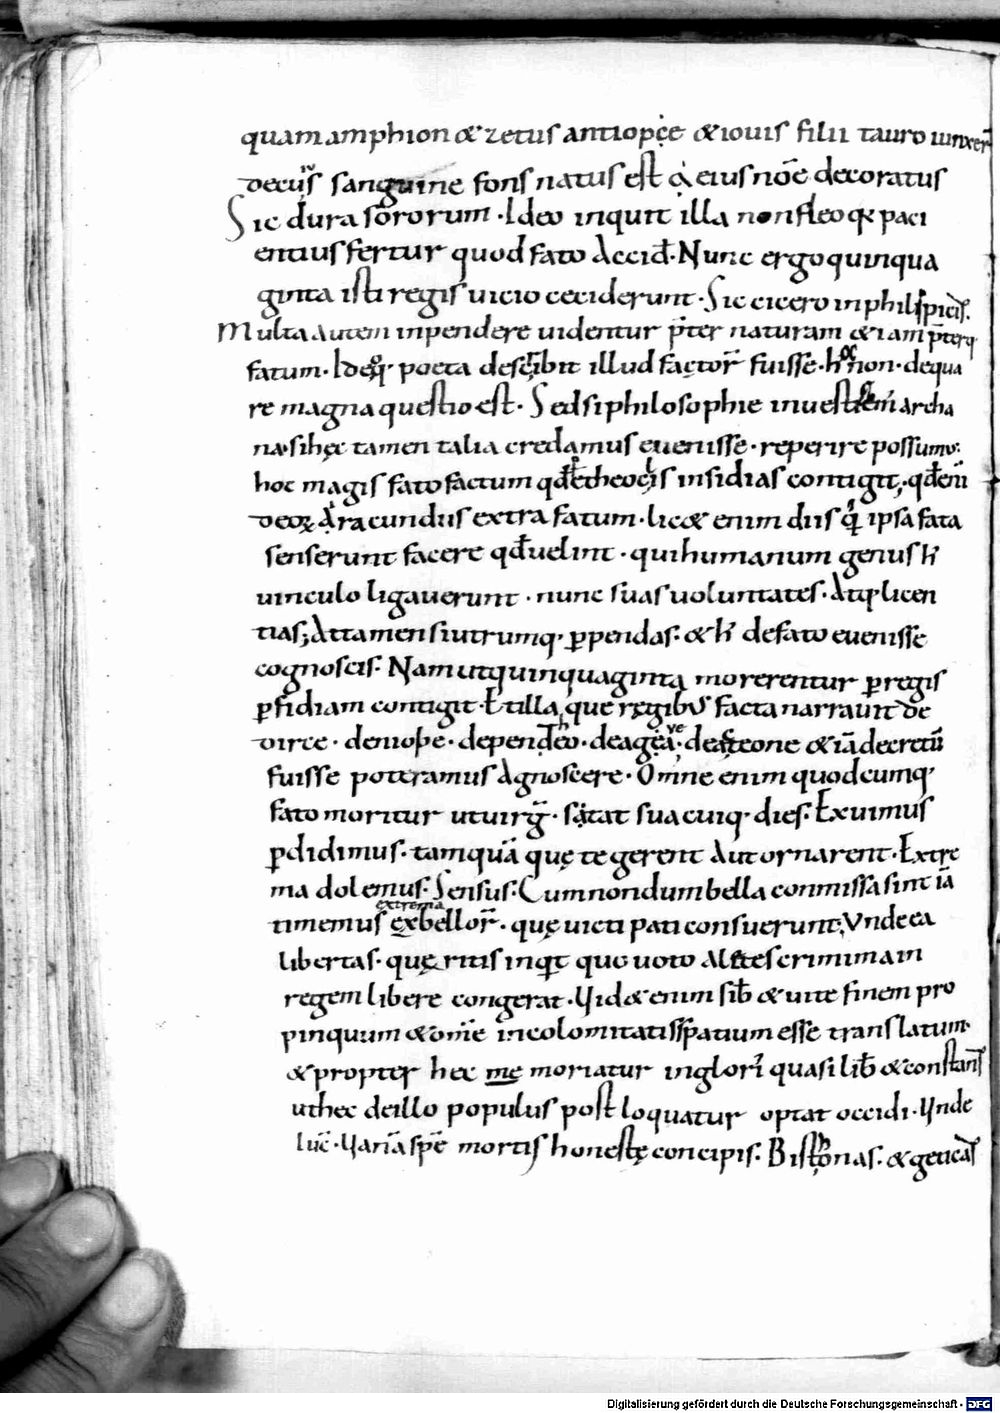 quam amphion & zetus antiopęe & iouis filii tauro iunxer̄
decuiʼs sanguine fons natus est q̇ eius nōe decoratus
Sic dura sororum · Ideo inquit illa non fleo q̄ paci
entius fertur quod fato Accid̄ · Nunc ergo quinqua
ginta isti regis uicio ceciderunt · Sic cicero in philippicis̄.
Multa Autem inpendere uidentur p̄ter naturam & iam p̄terq
fatum · Ideoq· poeta describit illud factor̄ fuisse · non · de qua
re magna questio est · Sed si philosophie inuestem̄ archa
na · si hęc tamen talia credamus euenisse · reperire possumu:
hoc magis fato factum qd̄ &theoclis insidias contigit, · qd̄ enī
deoꝝ Iracundus extra fatum · lic& enim diis q̇ ipsa fata
senserunt facere qd̄ uelint · qui humanum genus h̄
uinculo ligauerunt · nunc suas uoluntates · Atq· licen
tias; Attamen si utrumq· ꝑpendas · & h̄ de fato euenisse
cognoscis · Nam ut quinquaginta morerentur ꝑ regis
ꝑfidiam contigit · Et illa que regibus facta narrauit de
dirce · de niobe · de pentheo · de agaue · de acteone & iā decretū
fuisse poteramus Agnoscere · Omne enim quodcumq·
fato moritur ut uirḡ · stat sua cuiq· dies · Exuimus
ꝑdidimus · tamquā quę te gerent Aut ornarent · Extre
ma dolemus · Sensus · Cum nondum bella commissa sint iā
extrema
timemus ex bellor̄ · quę uicti pati consuerunt; Vnde ea
libertas · quęritis inquit quo uoto Alętes crimina in
regem libere congerat · Vid& enim sib̄ & uite finem pro
pinquum & ōme incolomitatis spatium esse translatum
& propter hec me moriatur inglori' quasi lib̄ & constans̄
ut hec de illo populus post loquatur optat occidi · Vnde
luc̄ · Variā spē mortis honestę concipis · Bistonas · & geticas̄